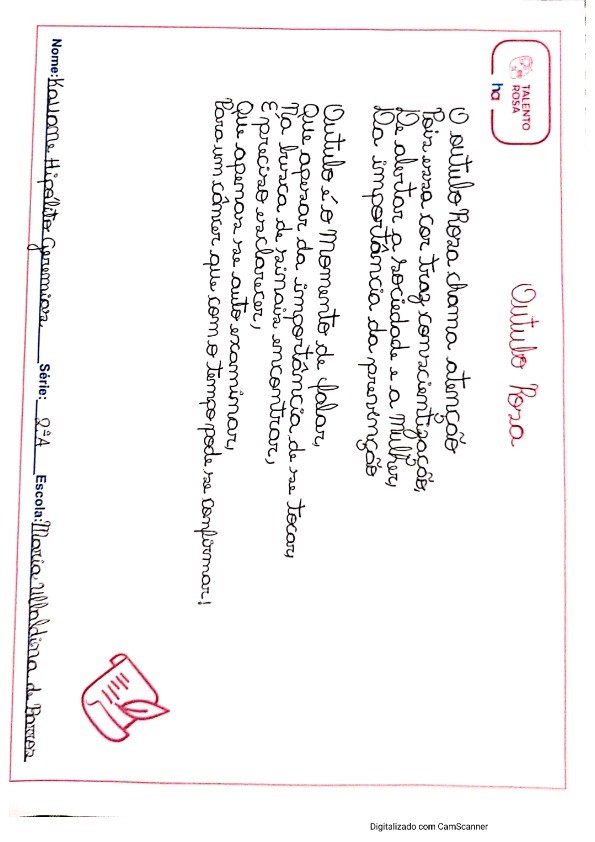 TALENTO
ROSA
ha
Outulo Rosa
O outulo Rosa chama atenção
Pois essa cor traz conscientização,
De alertar a sociedade e a Mulher,
Da importância da previnção
Outulo é o Momento de falar,
Que apesar da importância de se tocar,
Na busca de sinais encontrar,
E preciso esclarecer,
Que apenas se auto examinar,
Para um câncer que com o tempo pode se confirmar!
Nome: Kauane Hipolito Geremias Série: 2ºA Escola: Maria Ulbaldina de Barros
Digitalizado com CamScanner